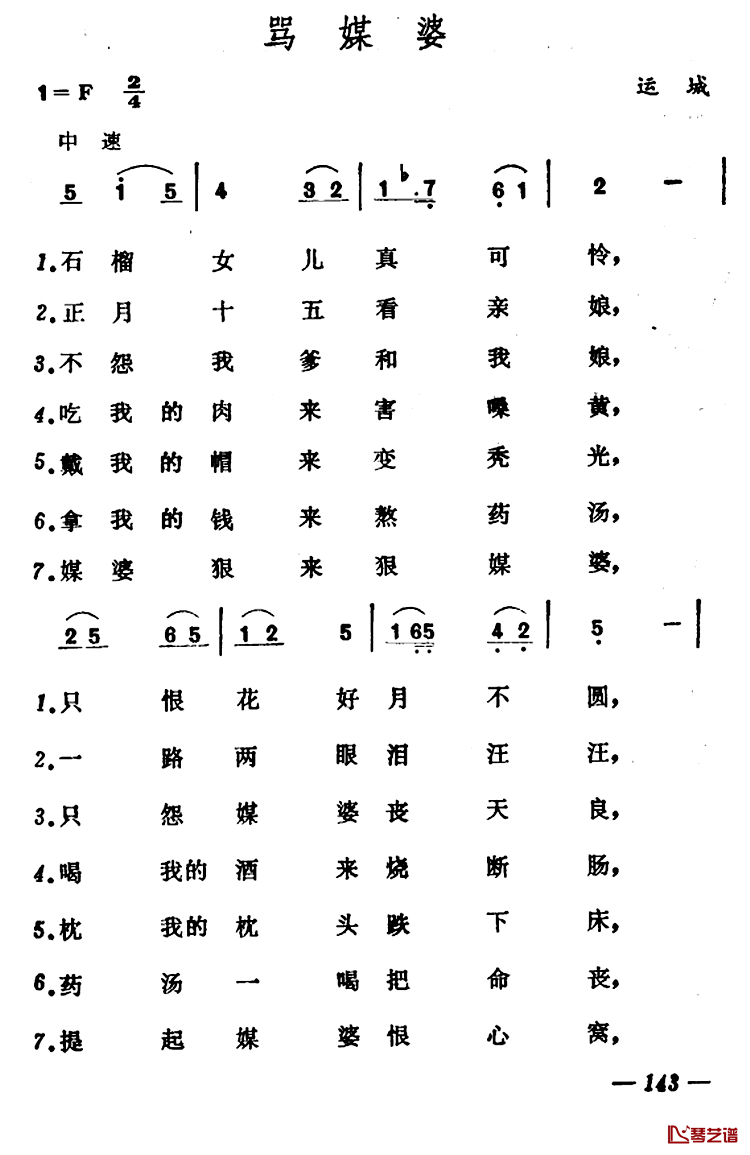 骂媒婆
1=F 2/4 运城
中速
5 i 5 | 4 3 2 | 1 ♭7 6 1 | 2 — |
1.石榴女儿真可怜，
2.正月十五看亲娘，
3.不怨我爹和我娘，
4.吃我的肉来害嗓黄，
5.戴我的帽来变秃光，
6.拿我的钱来熬药汤，
7.媒婆狠来狠媒婆，
2 5 6 5 | 1 2 5 | 1 6 5 4 2 | 5 — |
1.只恨花好月不圆，
2.一路两眼泪汪汪，
3.只怨媒婆丧天良，
4.喝我的酒来烧断肠，
5.枕我的枕头跌下床，
6.药汤一喝把命丧，
7.提起媒婆恨心窝，
— 143 —
琴艺谱